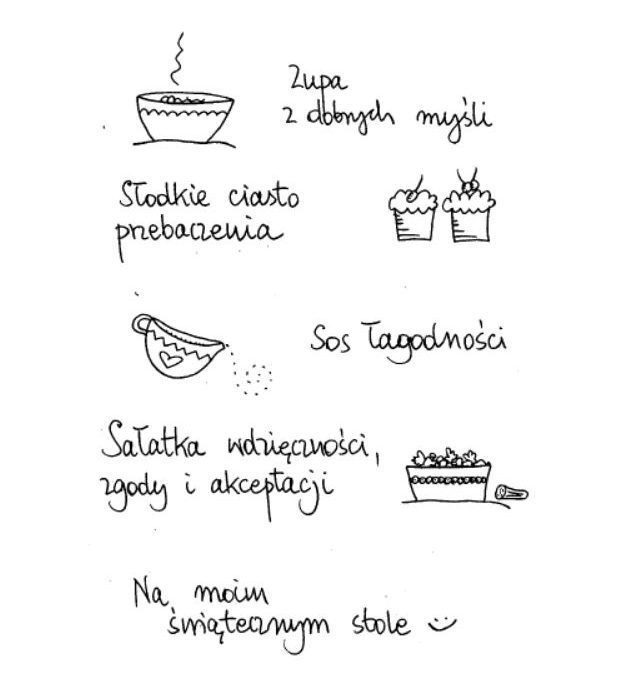 Zupa
z dobrych myśli
Słodkie ciasto
przebaczenia
Sos łagodności
Sałatka wdzięczności,
zgody i akceptacji
Na moim
świątecznym stole :)